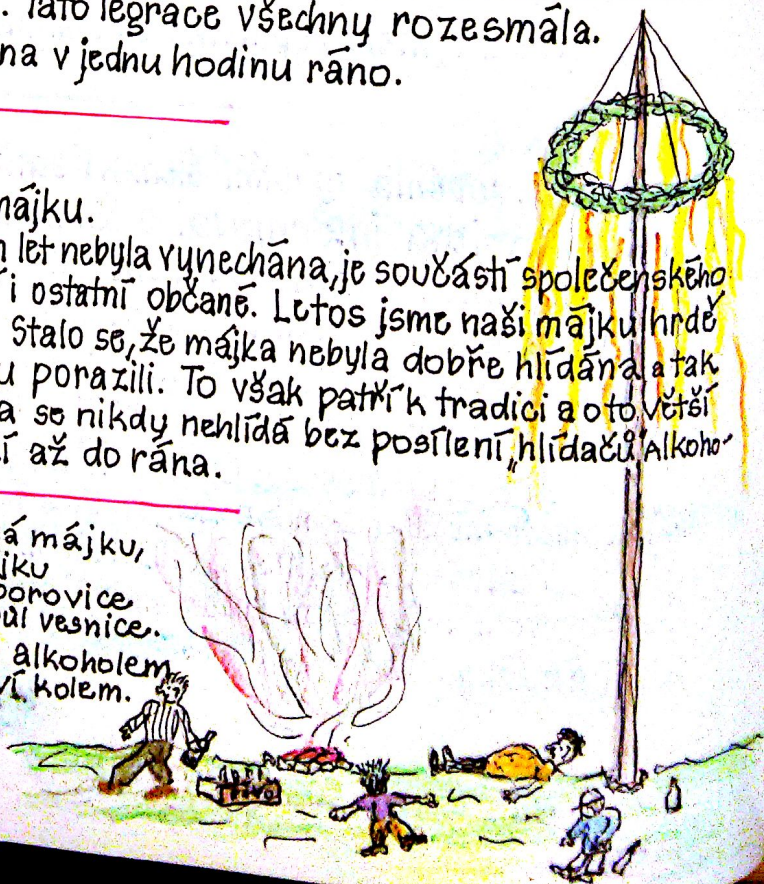 . Tato legrace všechny rozesmála.
na v jednu hodinu ráno.
májku.
let nebyla vynechána, je součástí společenského
i ostatní občané. Letos jsme naši májku hrdě
Stalo se, že májka nebyla dobře hlídána a tak
u porazili. To však patří k tradici a o to větší
a se nikdy nehlídá bez posílení „hlídačů" Alkoho-
í až do rána.
á májku,
jku
borovice
půl vesnice.
alkoholem
ví kolem.
Pivo